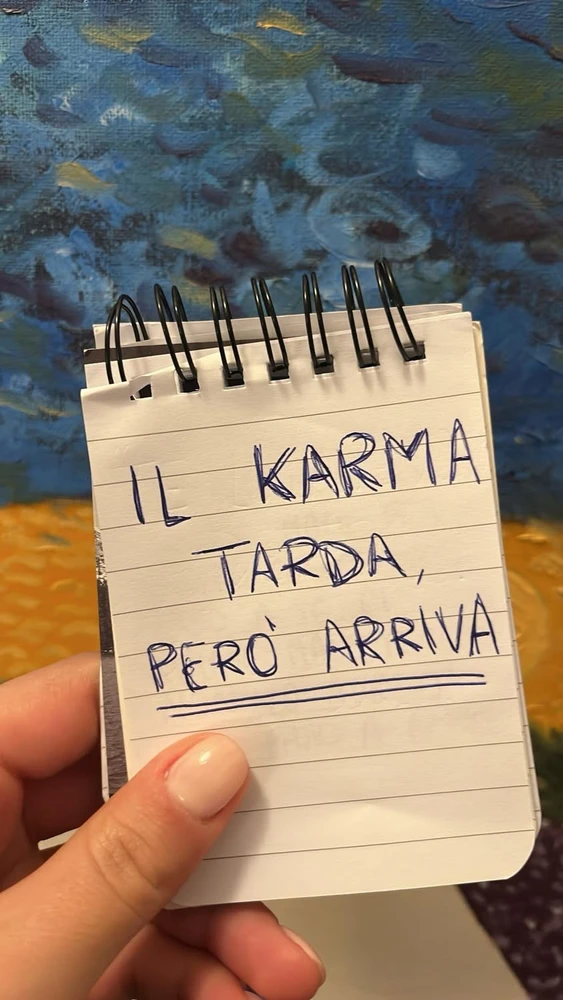 IL KARMA
TARDA,
PERÒ ARRIVA